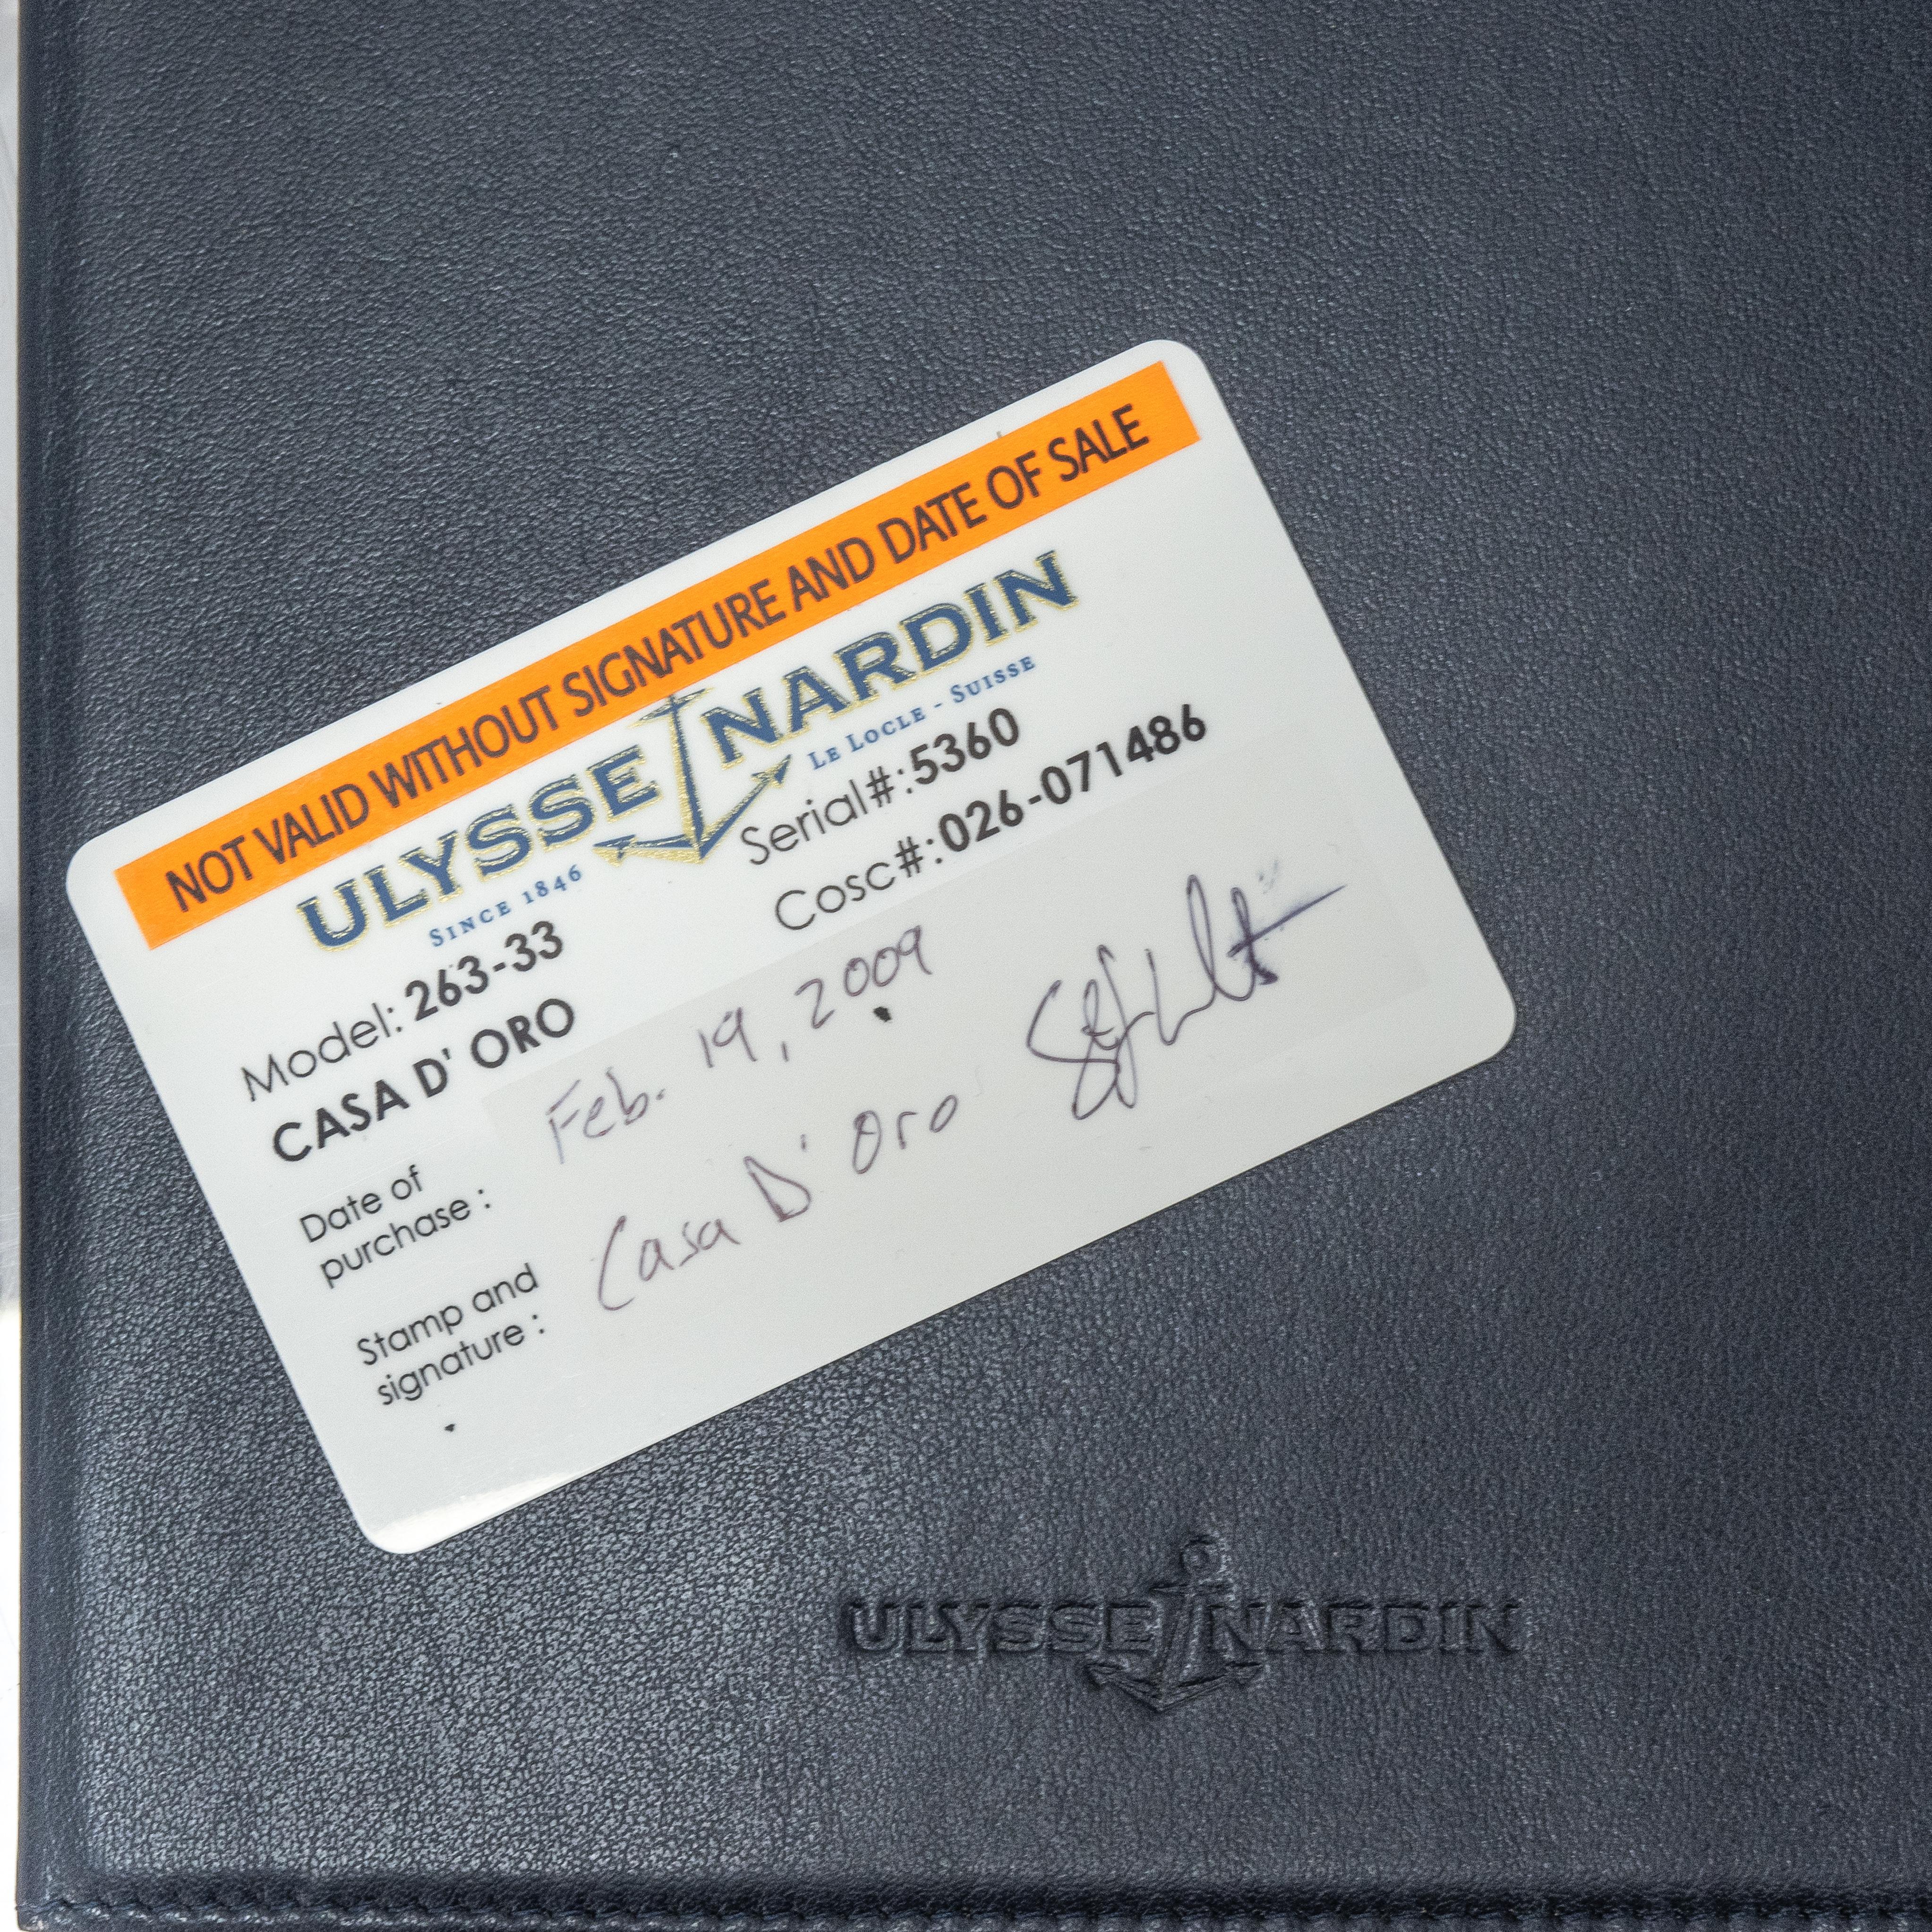 NOT VALID WITHOUT SIGNATURE AND DATE OF SALE
ULYSSE NARDIN
SINCE 1846 LE LOCLE - SUISSE
Model: 263-33 Serial#:5360
CASA D' ORO Cosc#:026-071486
Date of purchase : Feb. 19, 2009
Stamp and signature : Casa D' Oro
ULYSSE NARDIN